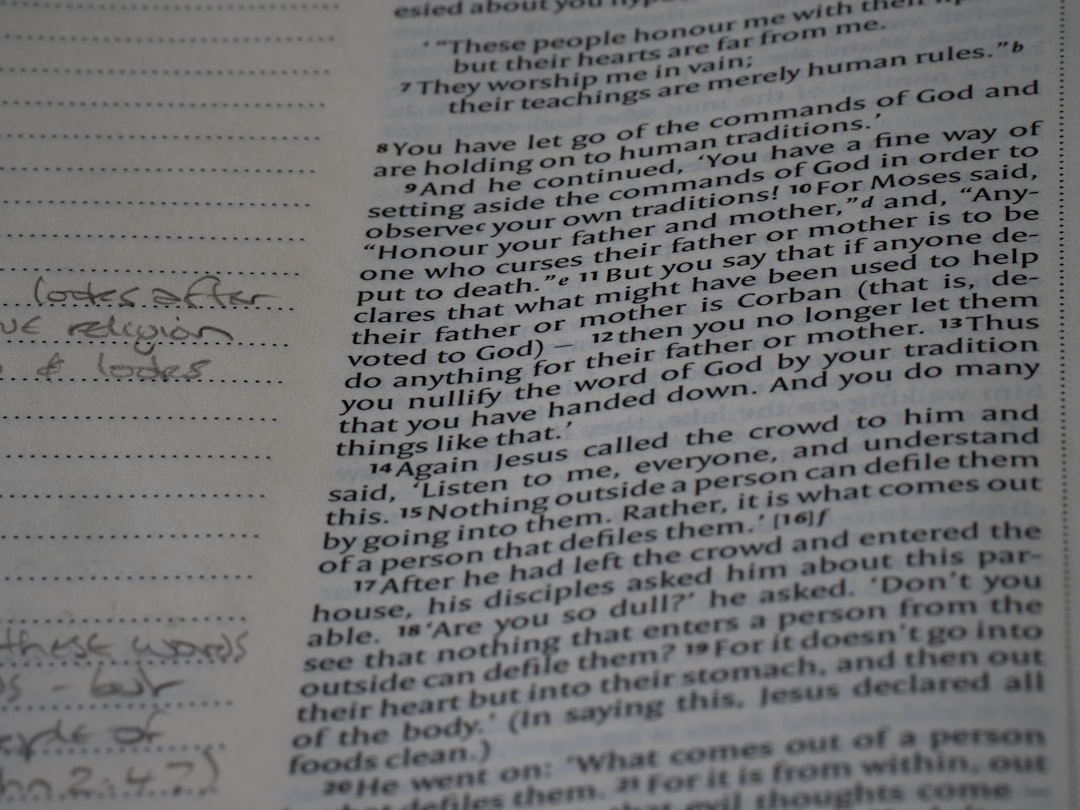 looks after
religion
& looks
these words
- but
of
2:4?)
esied about you
‘ “These people honour me with their
but their hearts are far from me.
7 They worship me in vain;
their teachings are merely human rules.” b
8 You have let go of the commands of God and
are holding on to human traditions.’
9 And he continued, ‘You have a fine way of
setting aside the commands of God in order to
observe c your own traditions! 10 For Moses said,
“Honour your father and mother,” d and, “Any-
one who curses their father or mother is to be
put to death.” e 11 But you say that if anyone de-
clares that what might have been used to help
their father or mother is Corban (that is, de-
voted to God) – 12 then you no longer let them
do anything for their father or mother. 13 Thus
you nullify the word of God by your tradition
that you have handed down. And you do many
things like that.’
14 Again Jesus called the crowd to him and
said, ‘Listen to me, everyone, and understand
this. 15 Nothing outside a person can defile them
by going into them. Rather, it is what comes out
of a person that defiles them.’ [16] f
17 After he had left the crowd and entered the
house, his disciples asked him about this par-
able. 18 ‘Are you so dull?’ he asked. ‘Don’t you
see that nothing that enters a person from the
outside can defile them? 19 For it doesn’t go into
their heart but into their stomach, and then out
of the body.’ (In saying this, Jesus declared all
foods clean.)
20 He went on: ‘What comes out of a person
defiles them. 21 For it is from within, out
that evil thoughts come –